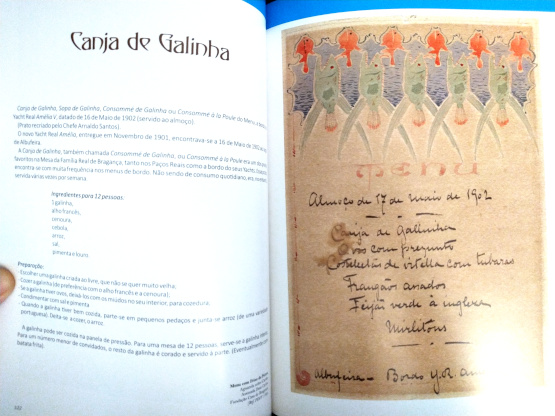 Canja de Galinha
Canja de Galinha, Sopa de Galinha, Consommé de Galinha ou Consommé à la Poule do Menu
Yacht Real Amélia V, datado de 16 de Maio de 1902 (servido ao almoço).
(Prato recriado pelo Chefe Arnaldo Santos).
O novo Yacht Real Amélia, entregue em Novembro de 1901, encontrava-se a 16 de Maio de 1902
de Albufeira.
A Canja de Galinha, também chamada Consommé de Galinha, ou Consommé à la Poule era um dos
favoritos na Mesa da Família Real de Bragança, tanto nos Paços Reais como a bordo do seus Yachts.
encontra-se com muita frequência nos menus de bordo. Não sendo de consumo quotidiano, era
servida várias vezes por semana
Ingredientes para 12 pessoas:
1 galinha,
alho francês,
cenoura,
cebola,
arroz,
sal,
pimenta e louro.
Preparação:
- Escolher uma galinha criada ao livre, que não se quer muito velha;
- Cozer a galinha (de preferência com o alho francês e a cenoura);
- Se a galinha tiver ovos, deixá-los com os miúdos no seu interior, para cozedura;
- Condimentar com sal e pimenta
- Quando a galinha tiver bem cozida, parte-se em pequenos pedaços e junta-se arroz (de uma variedade
portuguesa). Deita-se a cozer, o arroz.
A galinha pode ser cozida na panela de pressão. Para uma mesa de 12 pessoas, serve-se a galinha
Para um número menor de convidados, o resto da galinha é corado e servido à parte. (Eventualmente
batata frita).
Menu
Almoço de 17 de maio de 1902
Canja de Gallinha
Ovos com presunto
Costeletão de vitella com tubaras
Frangãos assados
Feijão verde à ingleza
Mirlitons
Albufeira - Bordo Y.R.